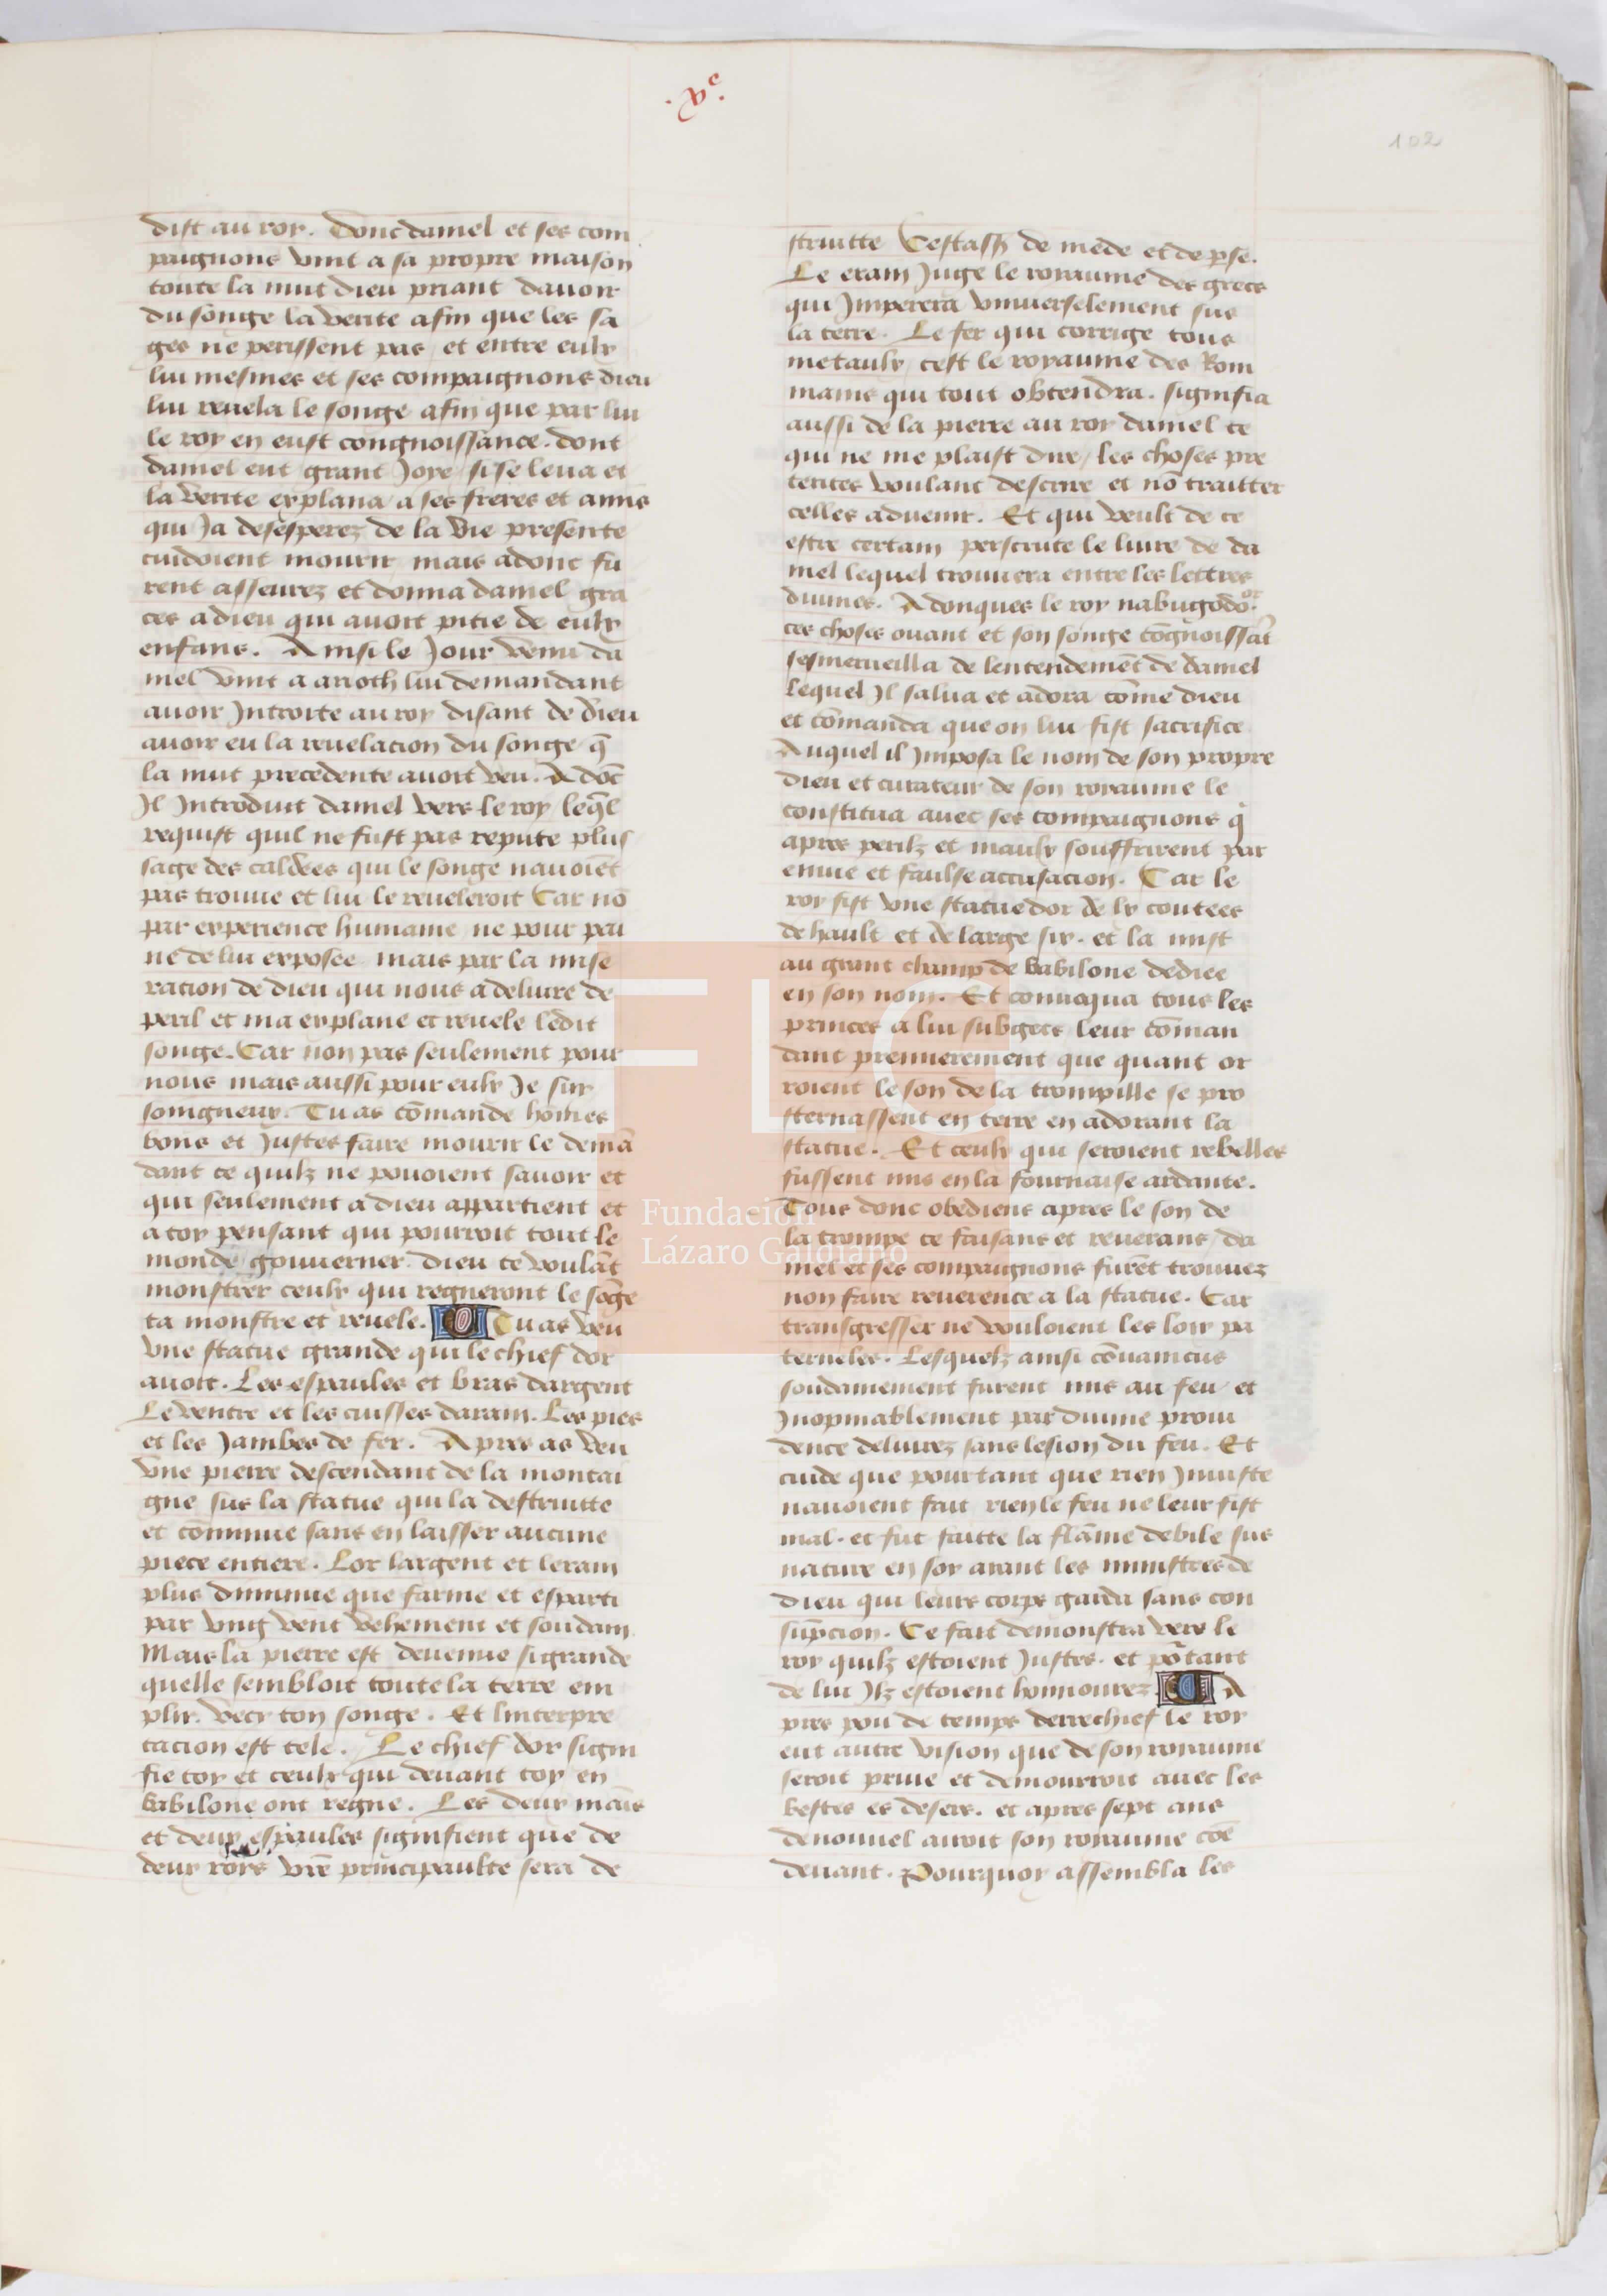 .xᵉ.
102
dist au roy. Donc daniel et ses com
paignons vint a sa propre maison
toute la nuit dieu priant davoir
du songe la verite afin que les sa
ges ne perissent pas et entre eulx
lui mesmes et ses compaignons dieu
lui revela le songe afin que par lui
le roy en eust congnoissance. dont
daniel eut grant Joye si se leva et
la verite explana a ses freres et amis
qui Ja desesperez de la vie presente
cuidoient mourir mais adonc fu
rent asseurez et donna daniel gra
ces a dieu qui avoit pitie de eulx
enfans. Ainsi le Jour venu da
niel vint a arioth lui demandant
avoir Introite au roy disant de dieu
avoir eu la revelacion du songe q̄
la nuit precedente avoit veu. A dōc
Il Introduit daniel vers le roy leq̄l
requist quil ne fust pas repute plus
sage des caldees qui le songe navoiēt
pas trouve et lui le reveleroit Car nō
par experience humaine ne pour pai
ne de lui exposee mais par la mise
racion de dieu qui nous a delivre de
peril et ma explane et revele ledit
songe. Car non pas seulement pour
nous mais aussi pour eulx Je suy
soingneux. Tu as cōmande hōmes
bons et Justes faire mourir le demā
dant ce quilz ne povoient savoir et
qui seulement a dieu appartient et
a toy pensant qui pourroit tout le
monde gouverner dieu te voulāt
monstrer ceulx qui regneront le sōge
ta monstre et revele. Tu as veu
vne statue grande qui le chief dor
avoit. Les espaules et bras dargent
Le ventre et les cuisses darain. Les pies
et les Jambes de fer. Apres as veu
vne pierre descendant de la montai
gne sus la statue qui la destruitte
et cōminue sans en laisser aucune
piece entiere. Lor largent et lerain
plus diminue que farine et esparti
par vng vent vehement et soudain
Mais la pierre est devenue si grande
quelle sembloit toute la terre em
plir. vecy ton songe. Et linterpre
tacion est tele. Le chief dor signi
fie toy et ceulx qui devant toy en
babilone ont regne. Les deux mais
et deux espaules signifient que de
deux roys vr̄e principaulte sera de
struitte Cestass̄ de mede et de p̄se.
Le erain Juge le royaume des grecs
qui Imperera vniverselement sus
la terre. Le fer qui corrige tous
metaulx cest le royaume des Rom
mains qui tout obtendra. signifia
aussi de la pierre au roy daniel ce
qui ne me plaist dire les choses pre
terites voulant descrire et nō traitter
celles advenir. Et qui veult de ce
estre certain perscrute le livre de da
niel lequel trouvera entre les lettres
divines. Adonques le roy nabugodoᵒʳ.
ces choses ouant et son songe cōgnoissāt
sesmerveilla de lentendemēt de daniel
lequel Il salua et adora cōme dieu
et cōmanda que on lui fist sacrifice
Auquel il Imposa le nom de son propre
dieu et curateur de son royaume le
constitua avec ses compaignons q̇
apres perilz et maulx souffrirent par
envie et faulse accusacion. Car le
roy fist vne statue dor de lx coutees
de hault et de large six. et la mist
au grant champ de babilone dediee
en son nom. Et convoqua tous les
princes a lui subgets leur cōman
dant premierement que quant or
roient le son de la trompille se pro
sternassent en terre en adorant la
statue. Et ceulx qui seroient rebelles
fussent mis en la fournaise ardante.
Tous donc obediens apres le son de
la trompe ce faisans et reverans da
niel et ses compaignons furēt trouvez
non faire reverence a la statue. Car
transgresser ne vouloient les loix pa
terneles. Lesquelz ainsi cōvaincus
soudainement furent mis au feu et
Inopinablement par divine provi
dence delivrez sans lesion du feu. Et
cuide que pourtant que rien Iniuste
navoient fait rien le feu ne leur fist
mal. et fut faitte la flāme debile sus
nature en soy aiant les ministres de
dieu qui leurs corps garda sans con
sūpcion. Ce fait demonstra vers le
roy quilz estoient Justes. et pōtant
de lui Ilz estoient honnourez. A
pres pou de temps derrechief le roy
eut autre vision que de son royaume
seroit prive et demourroit avec les
bestes es desers. et apres sept ans
de nouvel auroit son royaume cōe
devant. Pourquoy assembla les
Fundación
Lázaro Galdiano